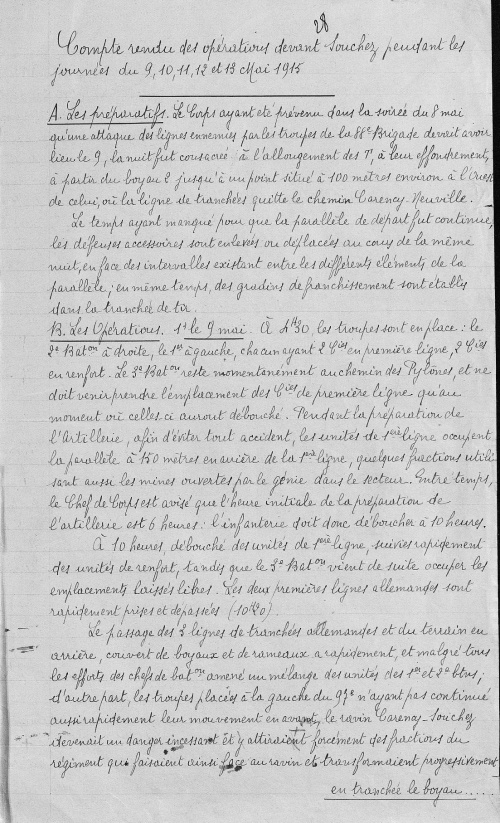 28
Compte rendu des opérations devant Souchez pendant les
journées du 9, 10, 11, 12 et 13 Mai 1915
A. Les préparatifs. Le Corps ayant été prévenu dans la soirée du 8 mai
qu'une attaque des lignes ennemies par les troupes de la 88e Brigade devait avoir
lieu le 9, la nuit fut consacré à l'allongement des , à leur effondrement,
à partir du boyau 2 jusqu'à un point situé à 100 mètres environ à l'Ouest
de celui, où la ligne de tranchées quitte le chemin Carency-Neuville.
Le temps ayant manqué pour que la parallèle de départ fut continue,
les défenses accessoires sont enlevés ou déplacées au cours de la même
nuit, en face des intervalles existant entre les différents éléments de la
parallèle ; en même temps, des gradins de franchissement sont établis
dans la tranchée de tir.
B. Les Opérations. 1º le 9 mai. À 4h30, les troupes sont en place : le
2e Baton à droite, le 1er à gauche, chacun ayant 2 Cies en première ligne, 2 Cies
en renfort. Le 3e Baton reste momentanément au chemin des Pylônes, et ne
doit venir prendre l'emplacement des Cies de première ligne qu'au
moment où celles ci auront débouché. Pendant la préparation de
l'Artillerie, afin d'éviter tout accident, les unités de 1ère ligne occupent
la parallèle à 150 mètres en arrière de la 1ère ligne, quelques fractions utili
sant aussi les mines ouvertes par le génie dans le secteur. Entre temps,
le Chef de Corps est avisé que l'heure initiale de la préparation de
l'artillerie est 6 heures : l'infanterie doit donc déboucher à 10 heures.
À 10 heures, débouché des unités de 1ère ligne, suivies rapidement
des unités de renfort, tandis que le 3e Baton vient de suite occuper les
emplacements laissés libres. Les deux premières lignes allemandes sont
rapidement prises et dépassées (10h20).
Le passage des 3 lignes de tranchées allemandes et du terrain en
arrière, couvert de boyaux et de rameaux a rapidement, et malgré tous
les efforts des chefs de baton amené un mélange des unités des 1er et 2e btns ;
d'autre part, les troupes placées à la gauche du 97e n'ayant pas continué
aussi rapidement leur mouvement en avant, le ravin Carency-Souchez
devenait un danger incessant et y attiraient forcément des fractions du
régiment qui faisaient ainsi face au ravin et transformaient progressivement
en tranchée le boyau .....